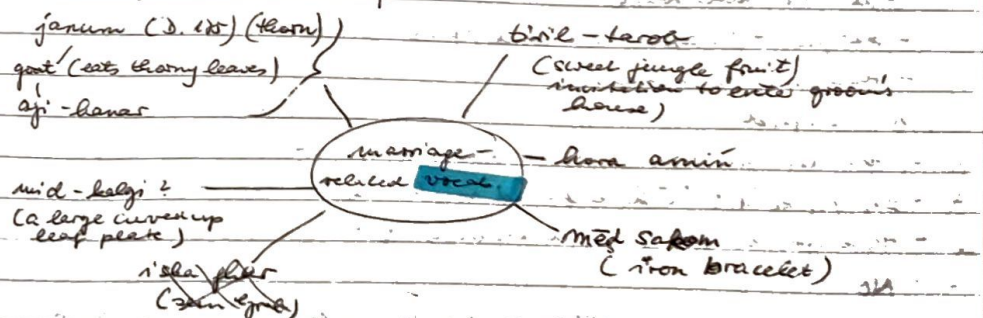 janum (D. 125) (thorn)
goat (eats thorny leaves)
aji-hanar
tiril-tarob
(sweet jungle fruit)
invitation to enter groom's
house)
marriage-
related vocab.
hora amiń
mid-kalgi?
(a large curved up
leaf plate)
mēd sakom
(iron bracelet)